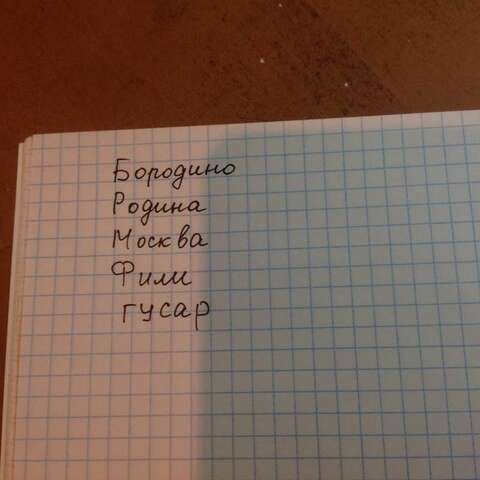 Бородино
Родина
Москва
Фили
гусар